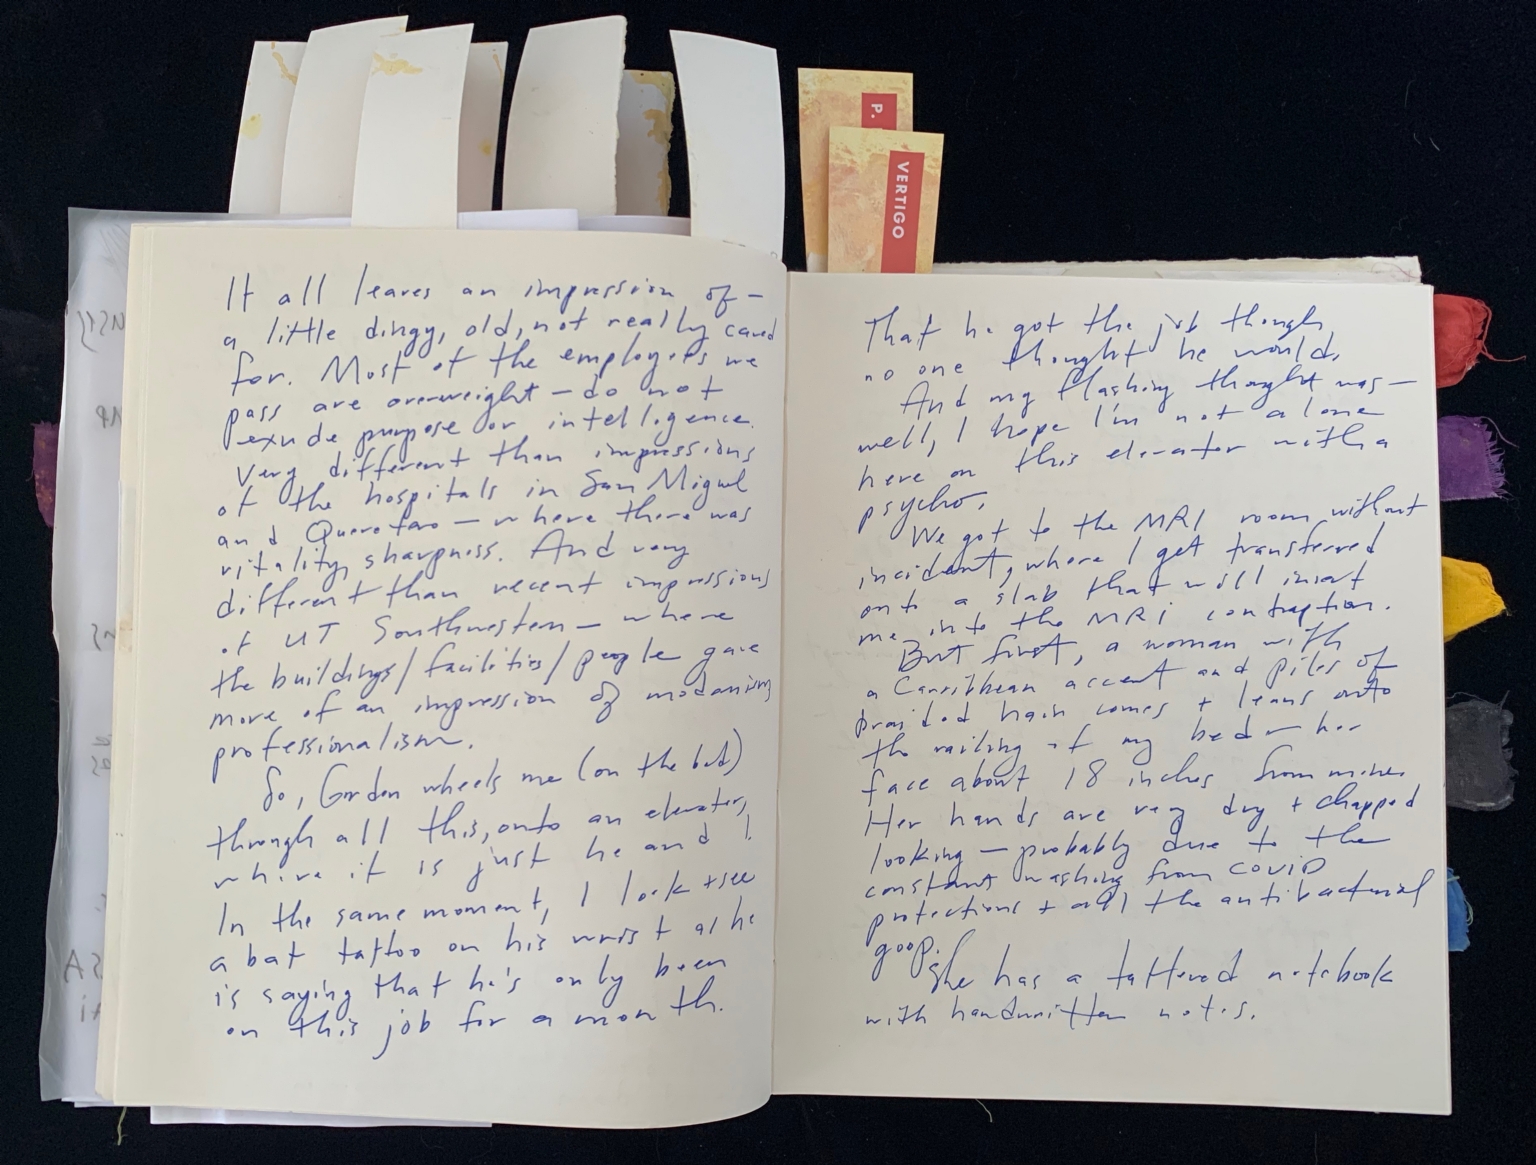 P.
VERTIGO
It all leaves an impression of —
a little dingy, old, not really cared
for. Most of the employees we
pass are overweight — do not
exude purpose or intelligence.
Very different than impressions
of the hospitals in San Miguel
and Queretaro — where there was
vitality, sharpness. And very
different than recent impressions
of UT Southwestern — where
the buildings/facilities/people gave
more of an impression of modernism
professionalism.
So, Gordon wheels me (on the bed)
through all this, onto an elevator,
where it is just he and I.
In the same moment, I look + see
a bat tattoo on his wrist as he
is saying that he's only been
on this job for a month.
That he got the job though,
no one thought he would.
And my flashing thought was —
well, I hope I'm not alone
here on this elevator with a
psycho.
We got to the MRI room without
incident, where I get transferred
onto a slab that will insert
me into the MRI contraption.
But first, a woman with
a Carribbean accent and piles of
braided hair comes + leans onto
the railing of my bed — her
face about 18 inches from mine.
Her hands are very dry + chapped
looking — probably due to the
constant washing from COVID
protections + all the antibacterial
goop.
She has a tattered notebook
with handwritten notes.